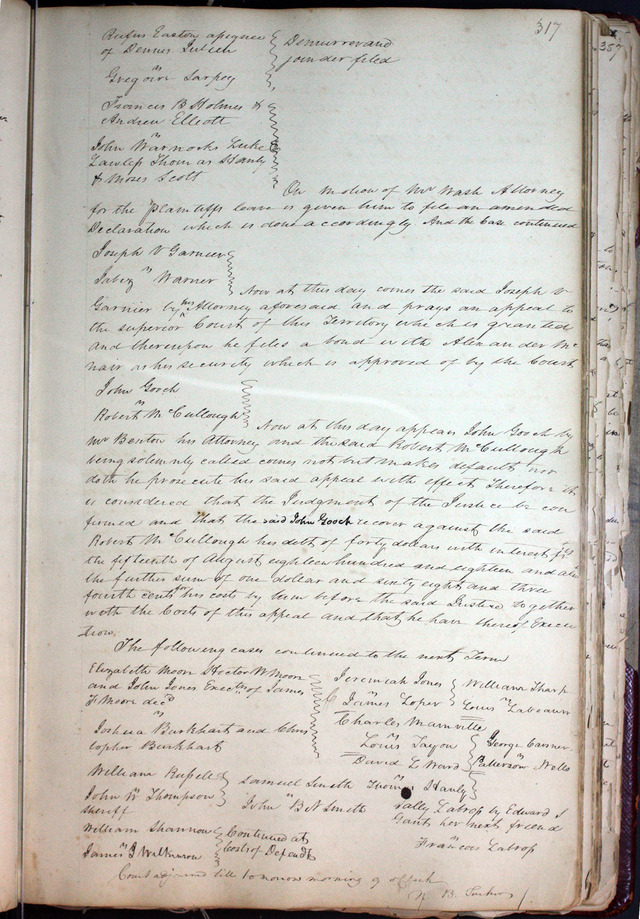 317
Rufus Easton assignee
of Dennis Julien
vs
Gregoire Sarpy
Demurrer and
joinder filed
Francis B Holmes &
Andrew Elliott
vs
John Warnocks Luke E
Lawless Thomas Hanly
& Moses Scott
On motion of Mr Wash Attorney
for the plaintiffs leave is given him to file an amended
Declaration which is done accordingly. And the Case continued
Joseph V Garnier
vs
Jabez Warner
Now at this day comes the said Joseph V
Garnier by his Attorney aforesaid and prays an appeal to
the superior Court of this Territory which is granted
and thereupon he files a bond with Alexander Mc
nair as his security which is approved of by the Court
John Gooch
vs
Robert McCullough
Now at this day appears John Gooch by
Mr Benton his Attorney and the said Robert McCullough
being solemnly called comes not but makes default nor
doth he prosecute his said appeal with effect Therefore it
is considered that the Judgment of the Justice be con
firmed and that the said John Gooch recover against the said
Robert McCullough his debt of forty dollars with interest from
the fifteenth of August eighteen hundred and eighteen and also
the further sum of one dollar and sixty eight and three
fourth cents for his costs by him before the said Justice together
with the Costs of this appeal and that he have thereof Execu
tion
The following cases continued to the next Term
Elizabeth Moon Hector W Moore
and John Jones Execrs of James
F Moore decd
vs
Joshua Burkhart and Chris
topher Burkhart
Jeremiah Jones
vs
James Loper
William Tharp
Louis Labeaum
Charles Mainville
vs
Louis Tayon
David L Ward
George Canner
Patterson Wells
William Russell
vs
John W Thompson
sheriff
Samuel Smith
John B N Smith
Thomas Hanly
Sally Latrop by Edward S
Gants her next friend
vs
Francois Latrop
William Shannon
vs
James B Wilkinson
Continued at
costs of Defendt
Court adjourned till tomorrow morning 9 oclock
N B Tucker
357